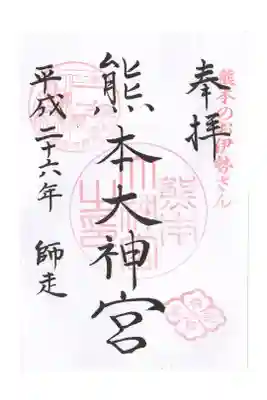 熊本のお伊勢さん
奉拝
熊本大神宮
平成二十六年 師走